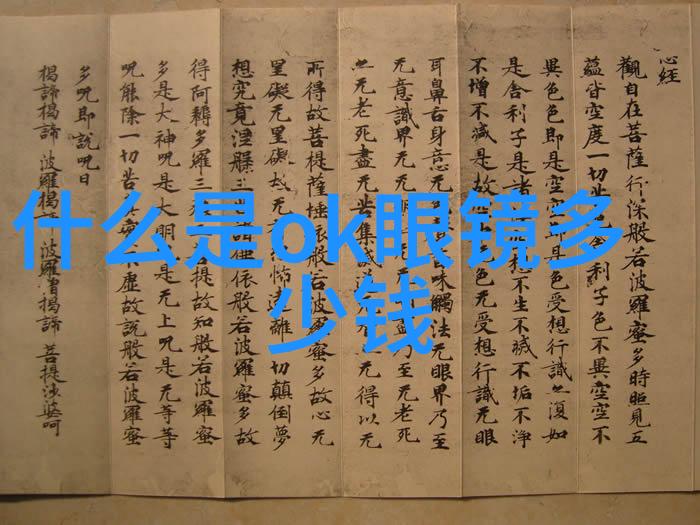 什么是ok眼镜多
少钱
心经
觀自在菩薩行深般若波羅蜜多時照見五
蘊皆空度一切苦舍利子色不異空空不
異色色即是空空即是色受想行識亦復如
是舍利子是諸想不生不滅不垢不淨
不增不減是故色无受想行識无眼
耳鼻舌身意无色味觸法无眼界乃至
无意識界无无明盡乃至无老死
亦无老死盡无苦集滅道无得以无
所得故菩提薩埵依般若波羅蜜多故心无
罣礙无罣礙故无怖遠離一切顛倒夢
想究竟涅槃三諸佛依般若波羅蜜多故
得阿耨多羅三菩提故知般若波羅蜜
多是大神呪是大明是无上呪是无等等
呪能除一切苦真不虛故說般若波羅蜜
多呪即說呪曰
揭諦揭諦 波羅揭諦 波羅僧揭諦 菩提婆呵